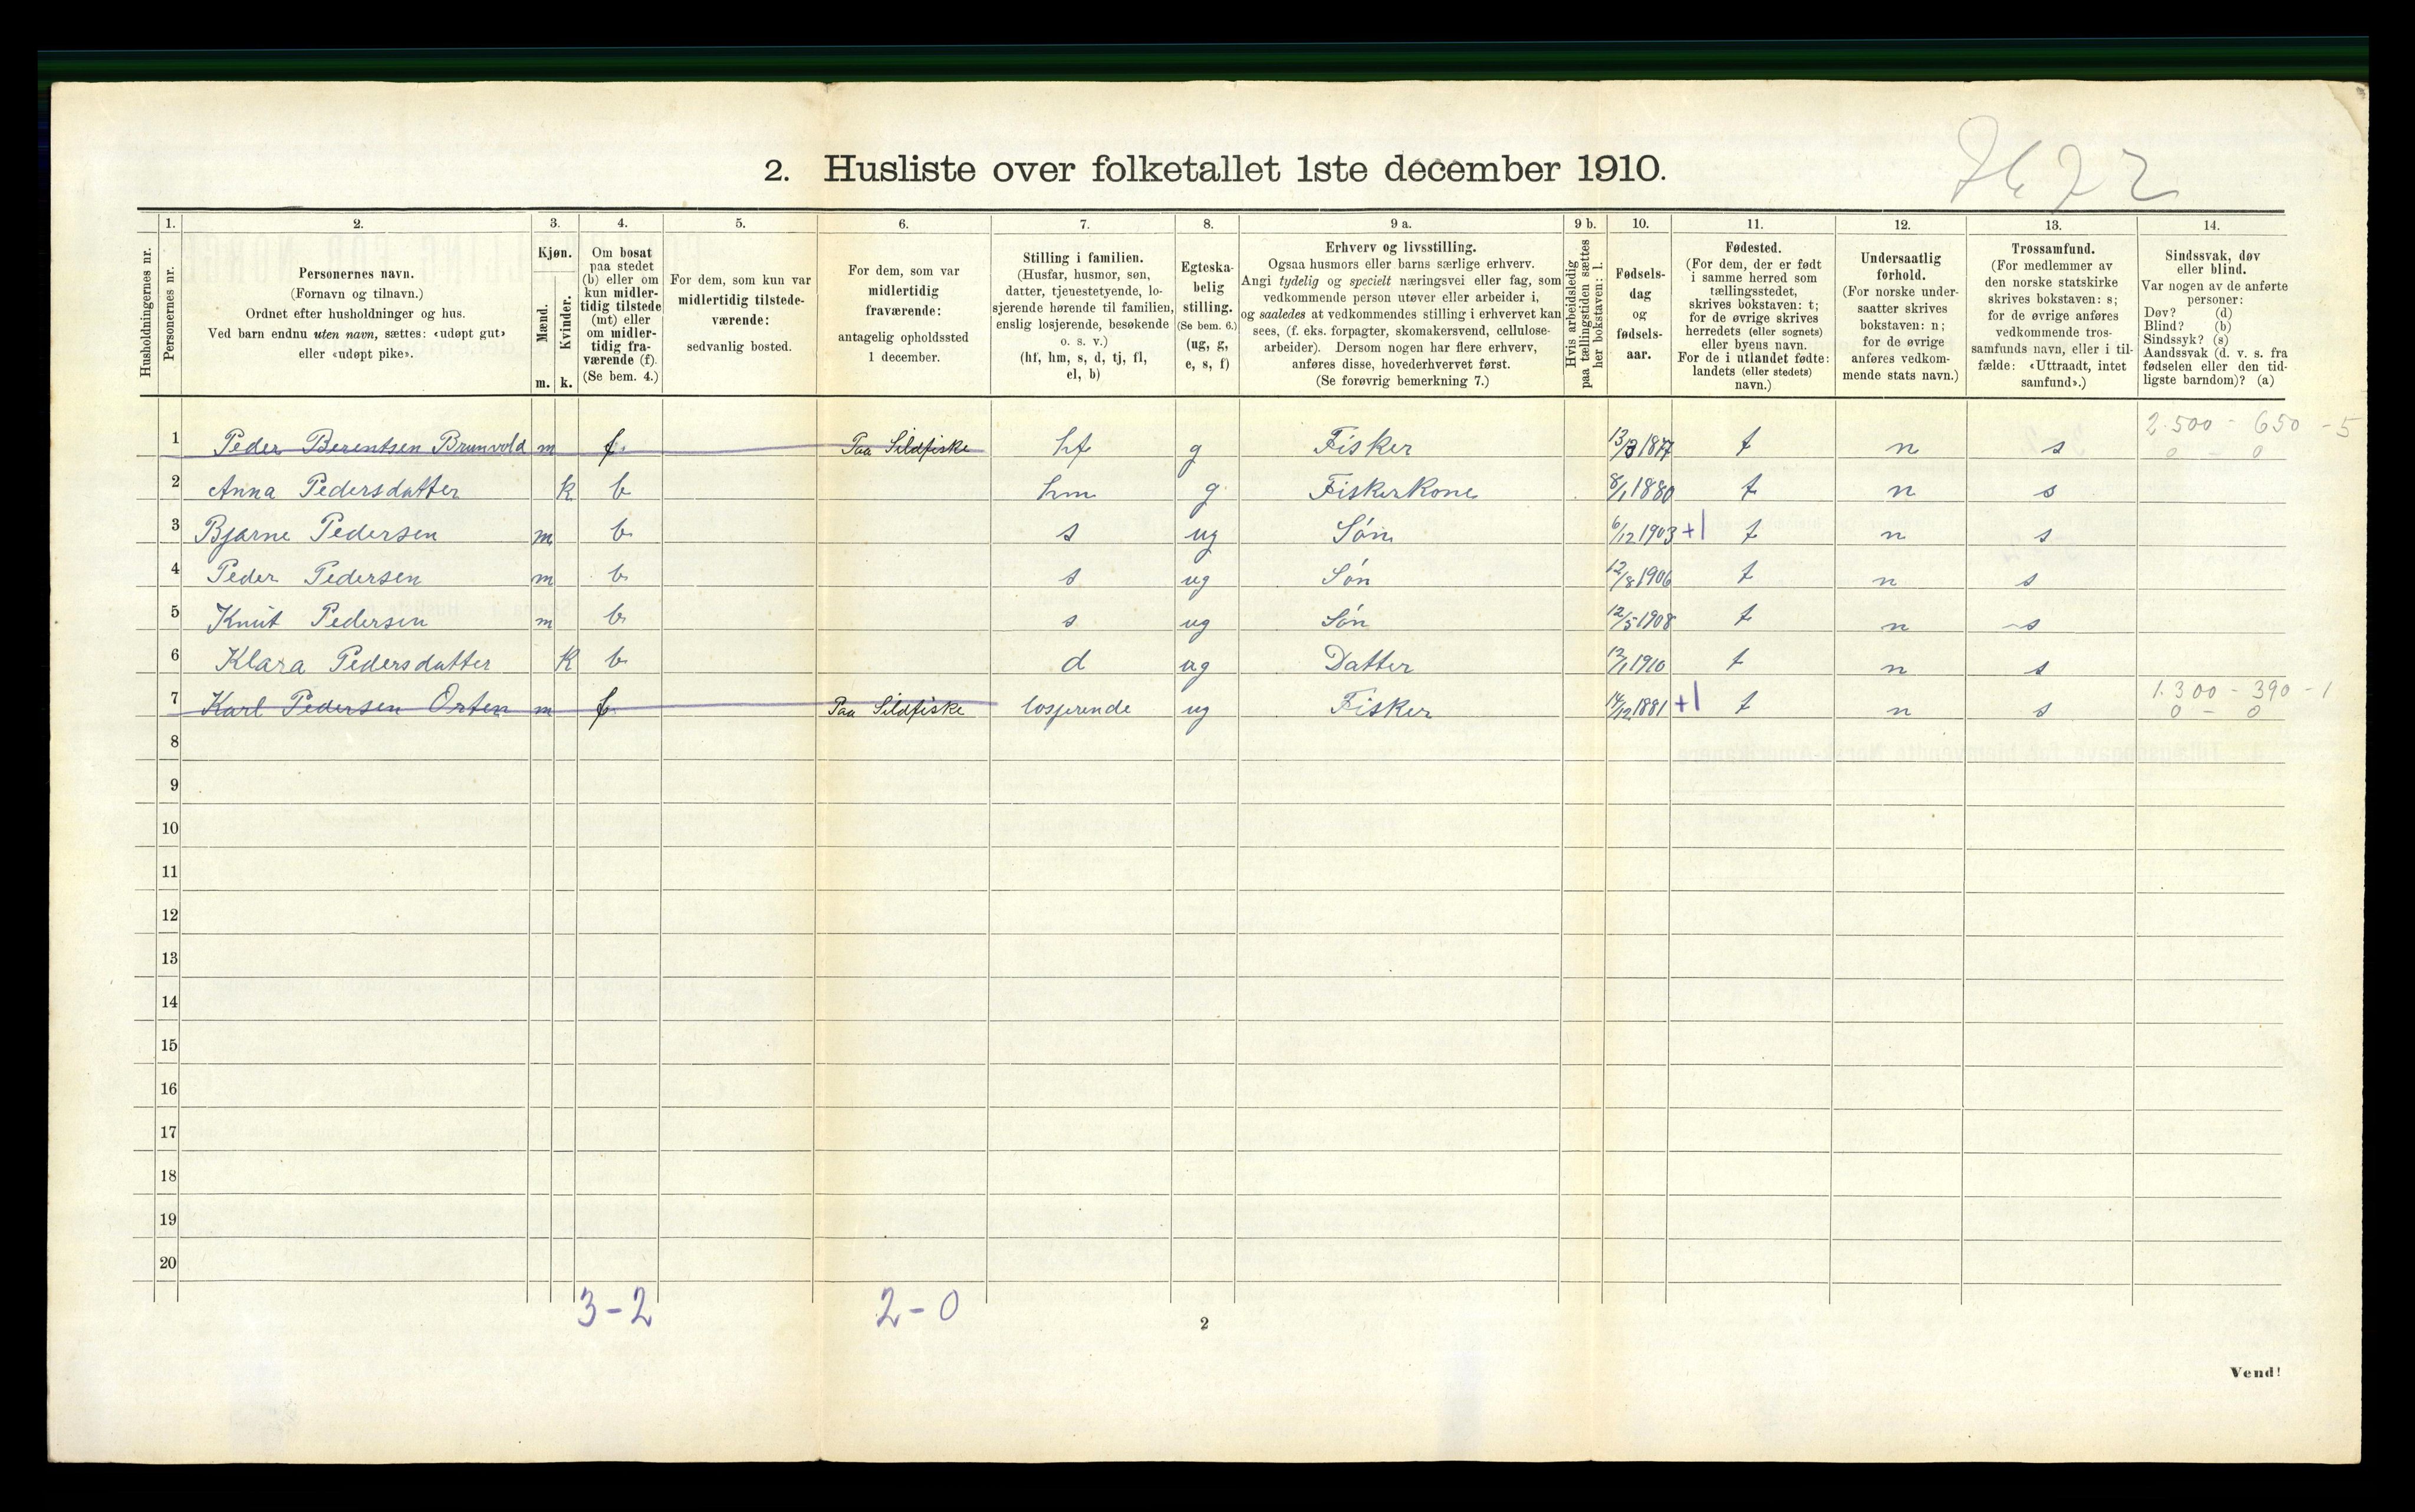 2. Husliste over folketallet 1ste december 1910.
Husholdningernes nr.
1. Personernes nr.
2. Personernes navn. (Fornavn og tilnavn.) Ordnet efter husholdninger og hus. Ved barn endnu uten navn, sættes: «udøpt gut» eller «udøpt pike».
3. Kjøn. Mænd. m. Kvinder. k.
4. Om bosat paa stedet (b) eller om kun midlertidig tilstede (mt) eller om midlertidig fraværende (f). (Se bem. 4.)
5. For dem, som kun var midlertidig tilstedeværende: sedvanlig bosted.
6. For dem, som var midlertidig fraværende: antagelig opholdssted 1 december.
7. Stilling i familien. (Husfar, husmor, søn, datter, tjenestetyende, losjerende hørende til familien, enslig losjerende, besøkende o. s. v.) (hf, hm, s, d, tj, fl, el, b)
8. Egteskabelig stilling. (Se bem. 6.) (ug, g, e, s, f)
9 a. Erhverv og livsstilling. Ogsaa husmors eller barns særlige erhverv. Angi tydelig og specielt næringsvei eller fag, som vedkommende person utøver eller arbeider i, og saaledes at vedkommendes stilling i erhvervet kan sees, (f. eks. forpagter, skomakersvend, cellulosearbeider). Dersom nogen har flere erhverv, anføres disse, hovederhvervet først. (Se forøvrig bemerkning 7.)
9 b. Hvis arbeidsledig paa tællingstiden sættes her bokstaven: l.
10. Fødselsdag og fødselsaar.
11. Fødested. (For dem, der er født i samme herred som tællingsstedet, skrives bokstaven: t; for de øvrige skrives herredets (eller sognets) eller byens navn. For de i utlandet fødte: landets (eller stedets) navn.)
12. Undersaatlig forhold. (For norske undersaatter skrives bokstaven: n; for de øvrige anføres vedkommende stats navn.)
13. Trossamfund. (For medlemmer av den norske statskirke skrives bokstaven: s; for de øvrige anføres vedkommende trossamfunds navn, eller i tilfælde: «Uttraadt, intet samfund».)
14. Sindssvak, døv eller blind. Var nogen av de anførte personer: Døv? (d) Blind? (b) Sindssyk? (s) Aandssvak (d. v. s. fra fødselen eller den tidligste barndom)? (a)
2.500 - 650 - 5
1 Peder Berentsen Brunvold m f. Paa Sildfiske hf g Fisker 13/3 1877 t n s 0 - 0
2 Anna Pedersdatter k b hm g Fiskerkone 8/1 1880 t n s
3 Bjarne Pedersen m b s ug Søn 6/12 1903 +1 t n s
4 Peder Pedersen m b s ug Søn 12/8 1906 t n s
5 Knut Pedersen m b s ug Søn 12/5 1908 t n s
6 Klara Pedersdatter k b d ug Datter 12/1 1910 t n s
1.300 - 390 - 1
7 Karl Pedersen Orten m f Paa Sildfiske losjerende ug Fisker 14/12 1881 +1 t n s 0 - 0
8
9
10
11
12
13
14
15
16
17
18
19
20
3-2 2-0
2
Vend!